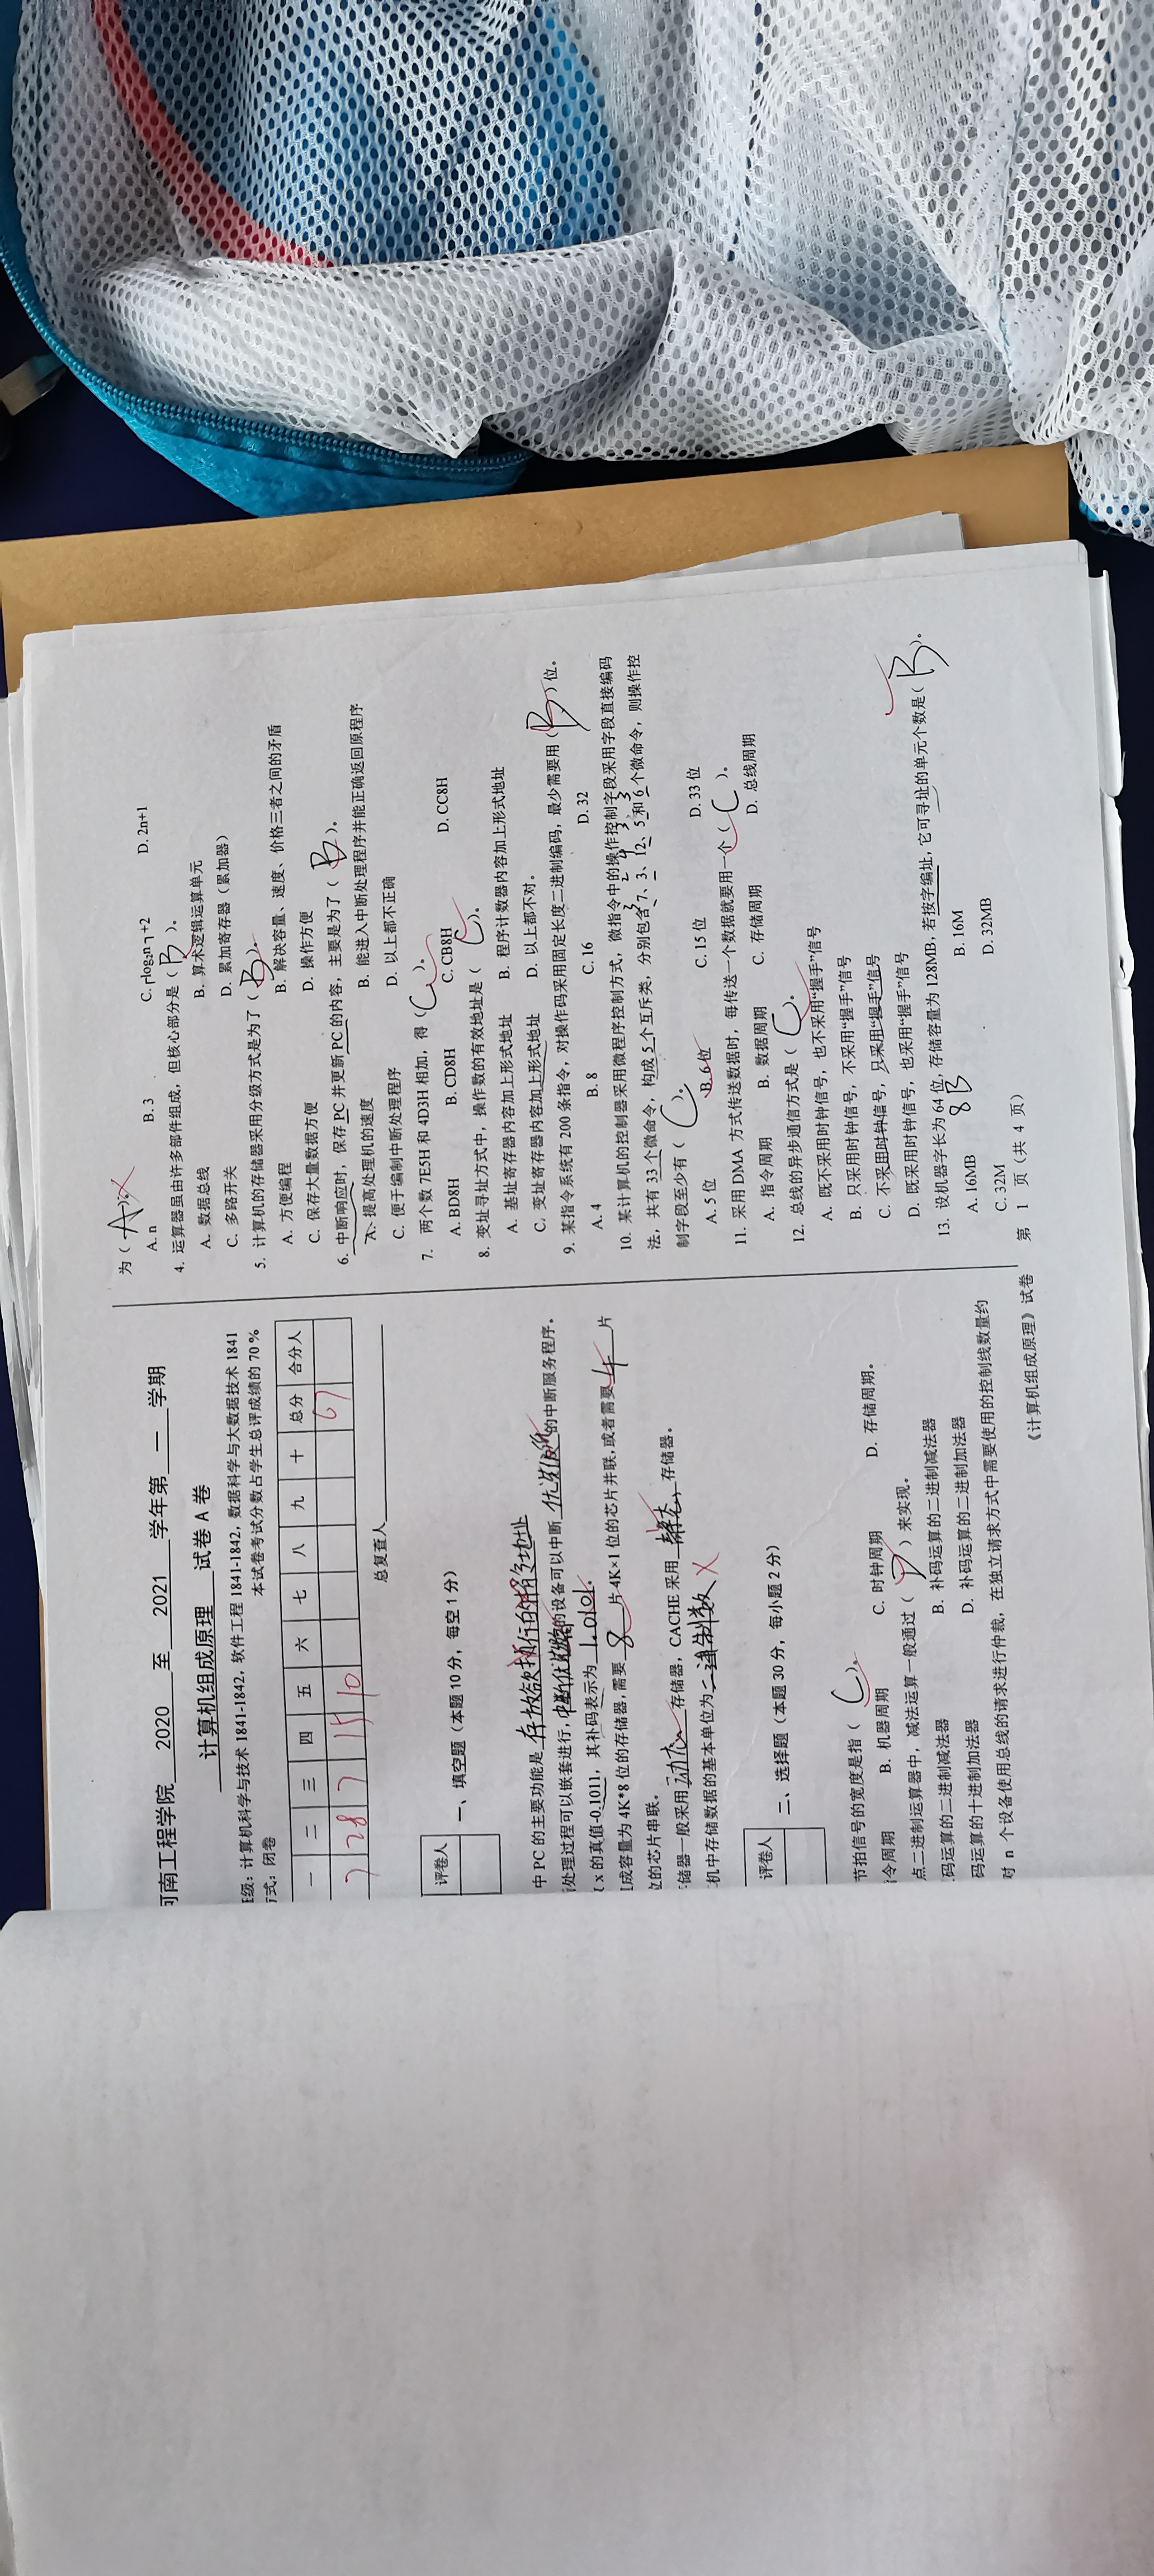 河南工程学院 2020 至 2021 学年第 一 学期
计算机组成原理 试卷 A 卷
班级：计算机科学与技术 1841-1842，软件工程 1841-1842，数据科学与大数据技术 1841
方式：闭卷 本试卷考试分数占学生总评成绩的 70 %
一 二 三 四 五 六 七 八 九 十 总分 合分人
7 28 7 15 10 67
总复查人
评卷人
一、填空题（本题 10 分，每空 1 分）
中 PC 的主要功能是 存放欲执行的指令地址
处理过程可以嵌套进行，中断优先级高的设备可以中断 优先级低 的中断服务程序。
x 的真值-0.1011，其补码表示为 1.0101。
成容量为 4K*8 位的存储器，需要 8 片 4K×1 位的芯片并联，或者需要 4 片
位的芯片串联。
存储器一般采用 动态 存储器，CACHE 采用 静态 存储器。
机中存储数据的基本单位为 二进制数
评卷人
二、选择题（本题 30 分，每小题 2 分）
节拍信号的宽度是指（ C ）。
指令周期 B. 机器周期 C. 时钟周期 D. 存储周期。
点二进制运算器中，减法运算一般通过（ D ）来实现。
码运算的二进制减法器 B. 补码运算的二进制减法器
码运算的十进制加法器 D. 补码运算的二进制加法器
对 n 个设备使用总线的请求进行仲裁，在独立请求方式中需要使用的控制线数量约
为（ A ）。
A. n B. 3 C. ┌log₂n ┐+2 D. 2n+1
4. 运算器虽由许多部件组成，但核心部分是（ B ）。
A. 数据总线 B. 算术逻辑运算单元
C. 多路开关 D. 累加寄存器（累加器）
5. 计算机的存储器采用分级方式是为了（ B ）。
A. 方便编程 B. 解决容量、速度、价格三者之间的矛盾
C. 保存大量数据方便 D. 操作方便
6. 中断响应时，保存 PC 并更新 PC 的内容，主要是为了（ B ）。
A. 提高处理机的速度 B. 能进入中断处理程序并能正确返回原程序
C. 便于编制中断处理程序 D. 以上都不正确
7. 两个数 7E5H 和 4D3H 相加，得（ C ）。
A. BD8H B. CD8H C. CB8H D. CC8H
8. 变址寻址方式中，操作数的有效地址是（ C ）。
A. 基址寄存器内容加上形式地址 B. 程序计数器内容加上形式地址
C. 变址寄存器内容加上形式地址 D. 以上都不对。
9. 某指令系统有 200 条指令，对操作码采用固定长度二进制编码，最少需要用（ B ）位。
A. 4 B. 8 C. 16 D. 32
10. 某计算机的控制器采用微程序控制方式，微指令中的操作控制字段采用字段直接编码
3 2 4 3 3
法，共有 33 个微命令，构成 5 个互斥类，分别包含 7、3、12、5 和 6 个微命令，则操作控
制字段至少有（ C ）。
A. 5 位 B. 6 位 C. 15 位 D. 33 位
11. 采用 DMA 方式传送数据时，每传送一个数据就要用一个（ C ）。
A. 指令周期 B. 数据周期 C. 存储周期 D. 总线周期
12. 总线的异步通信方式是（ C ）。
A. 既不采用时钟信号，也不采用“握手”信号
B. 只采用时钟信号，不采用“握手”信号
C. 不采用时钟信号，只采用“握手”信号
D. 既采用时钟信号，也采用“握手”信号
13. 设机器字长为 64 位，存储容量为 128MB，若按字编址，它可寻址的单元个数是（ B ）。
8B
A. 16MB B. 16M
C. 32M D. 32MB
《计算机组成原理》试卷 第 1 页（共 4 页）